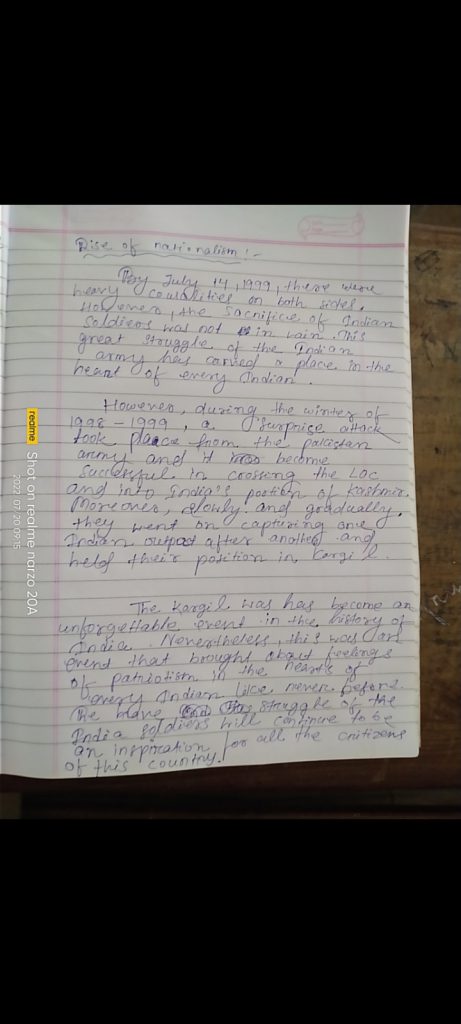 Rise of nationalism :-
By July 14, 1999, there were
heavy coualities on both sides.
However, the sacrifice of Indian
Soldiers was not in vain. This
great struggle of the Indian
army has carved a place in the
heart of every Indian.
However, during the winter of
1998 - 1999, a surprise attack
took place from the pakistan
army and it become
successful in crossing the LOC
and into India's portion of Kashmir.
Moreover, slowly and gradually,
they went on capturing one
Indian outpost after another and
held their position in Kargil.
The Kargil was has become an
unforgettable event in the history of
India. Nevertheless, this was an
event that brought about feelings
of patriotism in the hearts of
every Indian like never before.
The brave struggle of the
India soldiers will continue to be
an inspiration for all the citizens
of this country.
realme
Shot on realme narzo 20A
2022.07.20 09:15